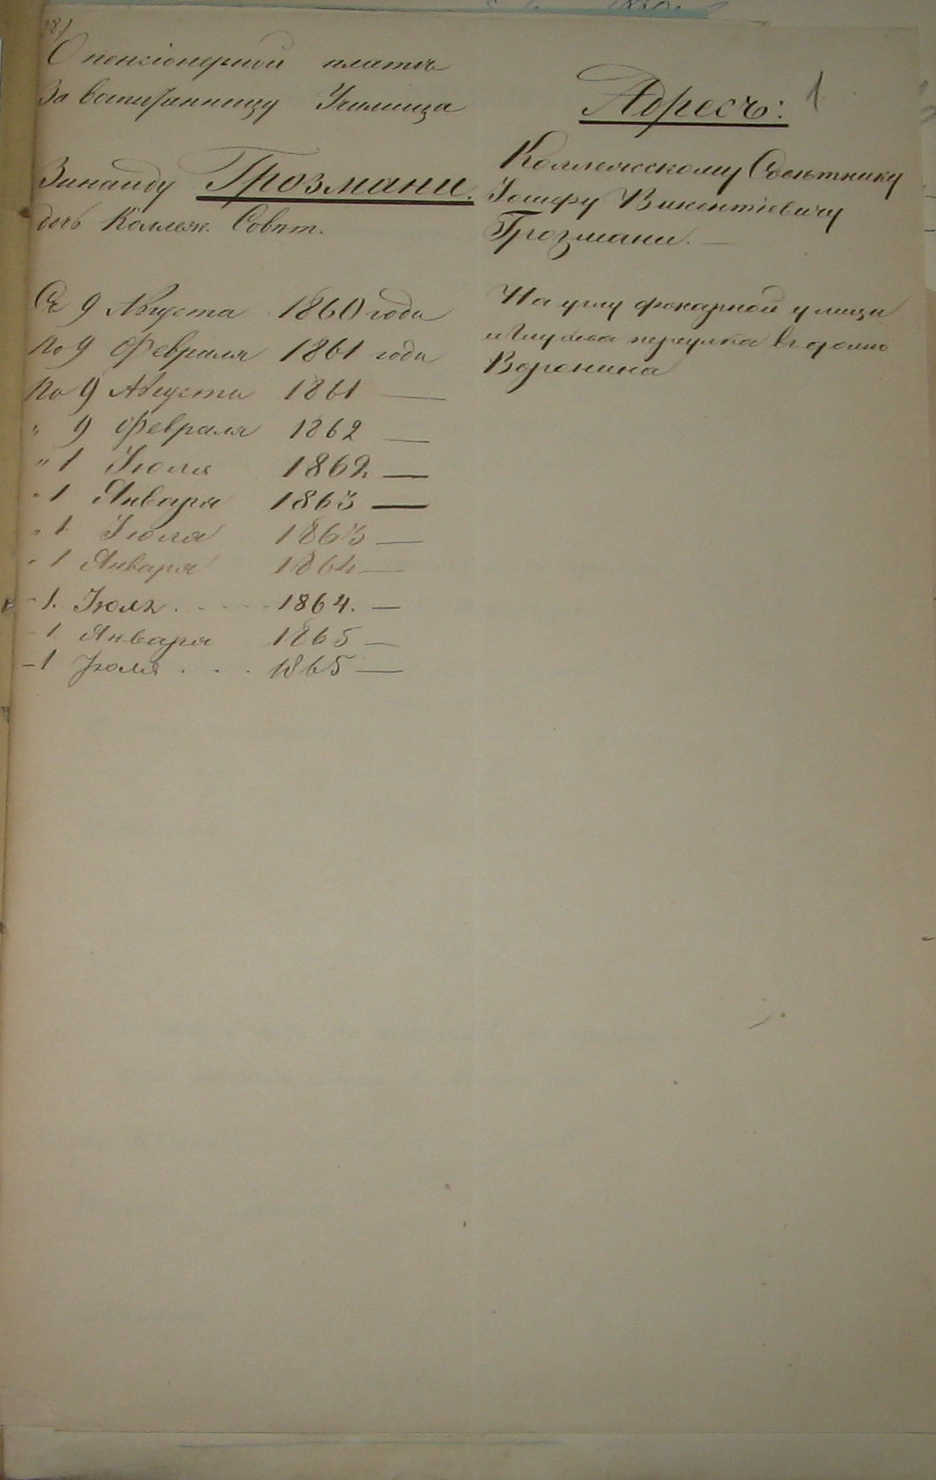 О пенсіонерной платѣ
За воспитанницу Училища
Зинаиду Грозмани.
дочь Коллеж. Совѣт.
Съ 9 Августа 1860 года
По 9 Февраля 1861 года
По 9 Августа 1861 —
" 9 Февраля 1862 —
" 1 Іюля 1862 —
" 1 Января 1863 —
" 1 Іюля 1863 —
" 1 Января 1864 —
- 1. Іюля . - - - 1864. —
- 1 Января 1865 —
- 1 Іюля . . . 1865 —
Адресъ: 1
Коллежскому Совѣтнику
Іосифу Викентіевичу
Грозмани. —
На углу Фонарной улицы
и переулка въ домѣ
Воронина